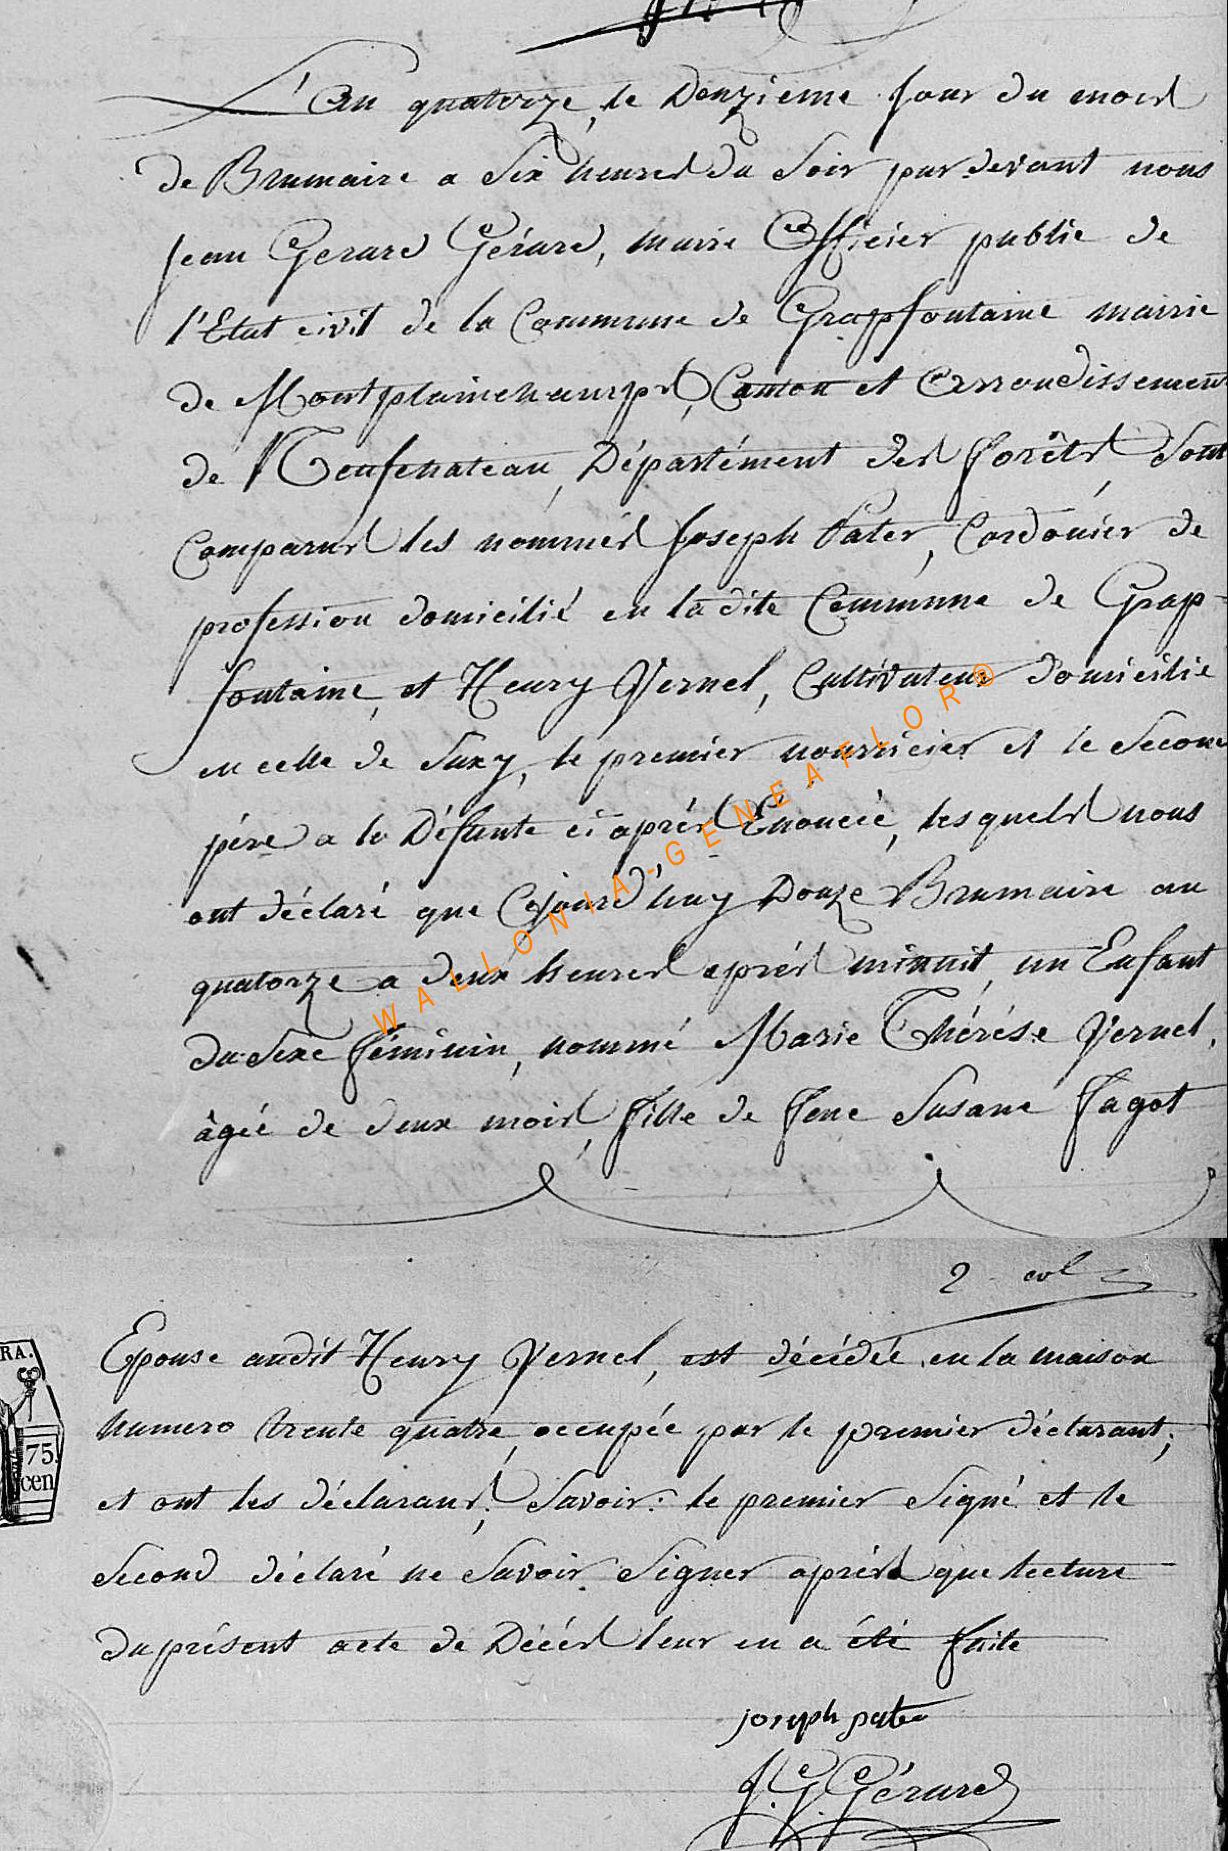 L'an quatorze, le Douzieme Jour du mois
de Brumaire a Six heures du Soir par devant nous
Jean Gerard Gérard, maire Officier public de
l'Etat civil de la Commune de Grapfontaine mairie
de Montplainchamps, Canton et Arrondissement
de Neufchateau, Département des forêts, Sont
Comparus les nommés Joseph Pater, Cordonier de
profession domicilié en la dite Commune de Grap-
fontaine, et Henry Vernel, Cultivateur domicilié
en celle de Suxy, le premier nourricier et le Second
père a la Défunte ci après Enoncée, lesquels nous
ont déclaré que Cejourd'huy Douze Brumaire an
quatorze a deux heures après minuit, un Enfant
du Sexe féminin, nommé Marie Thérése Vernel,
âgée de deux mois, fille de feue Susane Fagot
WALLONIA-GENEAFLOR®
2
Epouse audit Henry Vernel, est décédée en la maison
numero trente quatre, occupée par le premier déclarant;
RA.
75.
cen
et ont les déclarans, Savoir: le premier Signé et le
Second déclaré ne Savoir Signer après que lecture
du présent acte de Décés leur en a été faite
joseph pater
J. G. Gérard